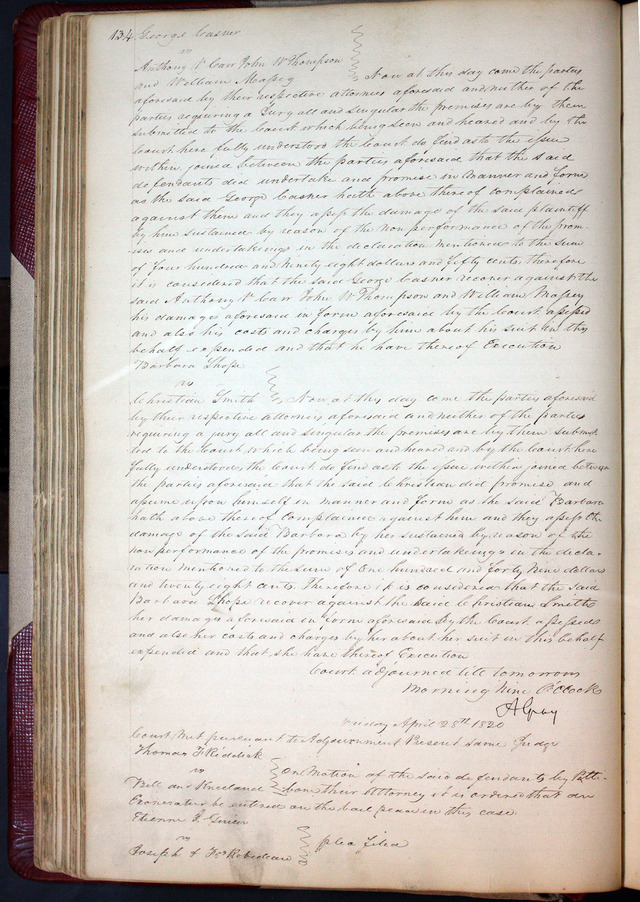 134 George Casner
vs
Anthony V Carr John W Thompson
and William Massey Now at this day come the parties
aforesaid by their respective attornies aforesaid and neither of the
parties requiring a Jury all and singular the premises are by them
submitted to the Court which being seen and heared and by the
Court here fully understood the Court do find as to the issue
within joined between the parties aforesaid that the said
defendants did undertake and promise in manner and form
as the said George Casner hath above thereof complained
against them and they assess the damage of the said plaintiff
by him sustained by reason of the non performance of the prom-
ises and undertakings in the declaration mentioned to the sum
of four hundred and ninety eight dollars and fifty cents therefore
it is considered that the said George Casner recover against the
said Anthony V Carr John W Thompson and William Massey
his damages aforesaid in form aforesaid by the Court assessed
and also his costs and charges by him about his suit in this
behalf expended and that he have thereof Execution
Barbara Shope
vs
Christian Smith Now at this day come the parties aforesaid
by their respective attornies aforesaid and neither of the parties
requiring a jury all and singular the premises are by them submit
ted to the Court which being seen and heared and by the Court here
fully understood the Court do find as to the issue within joined between
the parties aforesaid that the said Christian did promise and
assume upon himself in manner and form as the said Barbara
hath above thereof complained against him and they assess the
damage of the said Barbara by her sustained by reason of the
non performance of the promises and undertakings in the decla-
ration mentioned to the sum of One hundred and forty Nine dollars
and twenty eight cents. Therefore it is considered that the said
Barbara Shope recover against the said Christian Smith
her damages aforesaid in form aforesaid by the Court assessed
and also her costs and charges by her about her suit in this behalf
expended and that she have thereof Execution
Court adjourned till tomorrow
Morning Nine O'Clock
A Gray
Friday April 28th 1820
Court met pursuant to Adjournment Present same Judge
Thomas F Riddick
vs
Bell and Kneeland On Motion of the said defendants by
their Attorney it is ordered that an
Exonerater be entered on the bail piece in this case
Etienne
vs
Joseph & Fs Robideau plea filed